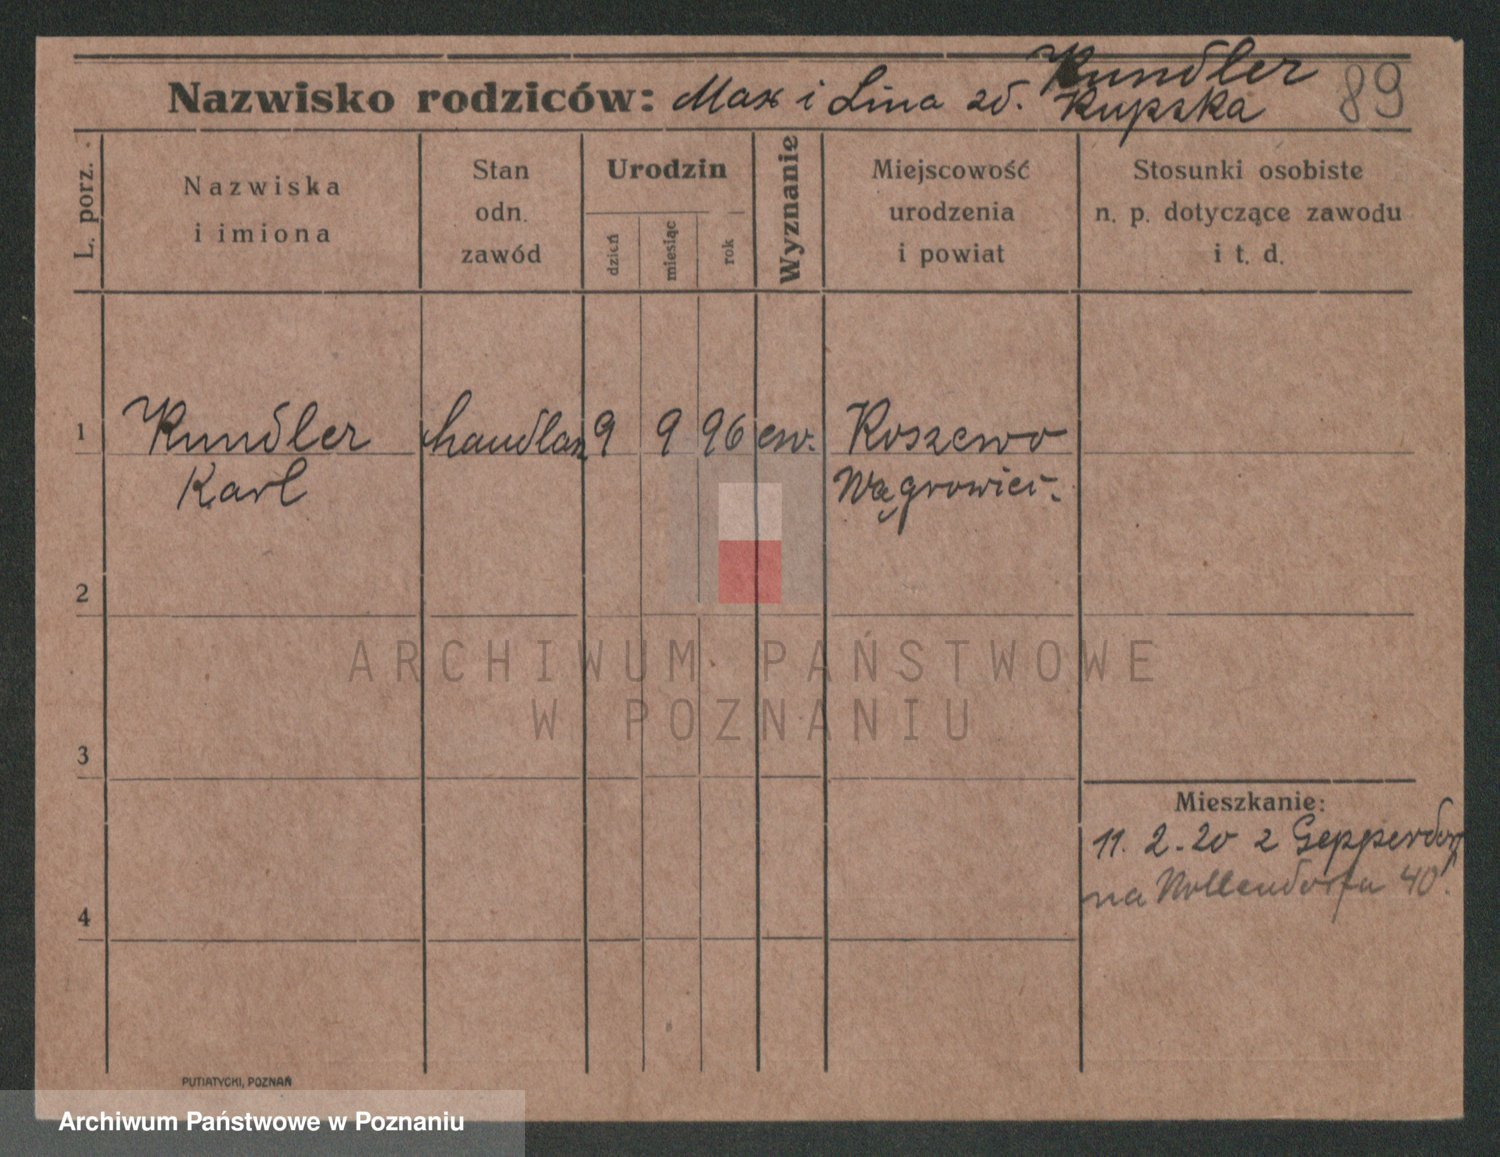 Nazwisko rodziców: Max i Lina zd. Kundler
Kupska
89
L. porz.
Nazwiska
i imiona
Stan
odn.
zawód
Urodzin
dzień
miesiąc
rok
Wyznanie
Miejscowość
urodzenia
i powiat
Stosunki osobiste
n. p. dotyczące zawodu
i t. d.
1
Kundler handlarz 9 9 96 ew. Roszewo
Karl Wągrowiec
2
ARCHIWUM PAŃSTWOWE
W POZNANIU
3
Mieszkanie:
11. 2. 20 z Gepperdorf
na Nollendorfa 40.
4
PUTIATYCKI, POZNAŃ
Archiwum Państwowe w Poznaniu